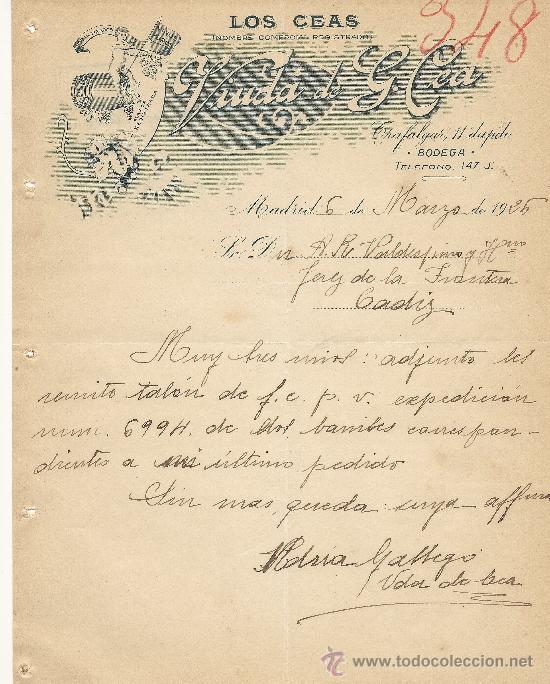 LOS CEAS
(NOMBRE COMERCIAL REGISTRADO)
348
Viuda de G. Cea
Trafalgar, 11 dupdo
· BODEGA ·
TELÉFONO, 147 J.
Madrid 6 de Marzo de 1925
Sr. Dn A. R. Valdespino y Hno
Jerez de la Frontera
Cadiz
Muy Sres mios: adjunto les
remito talón de f. c. p. v. expedición
num. 6994. de dos barriles correspon-
dientes a mi último pedido
Sin mas, queda suya affma
Gallego
Vda de Cea
todocoleccion
www.todocoleccion.net